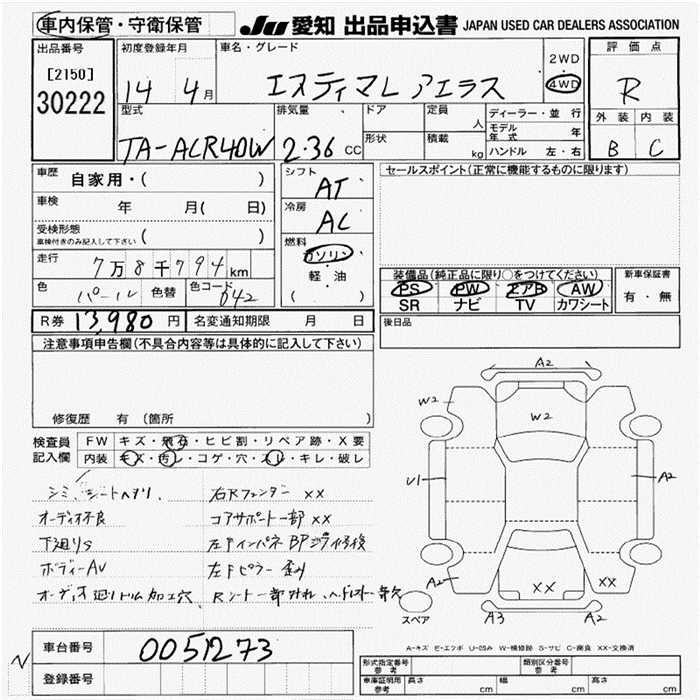 車内保管・守衛保管 JU 愛知 出品申込書 JAPAN USED CAR DEALERS ASSOCIATION
出品番号 初度登録年月 車名・グレード 2WD ・ 4WD 評価点
[2150]
30222 14 4月 エスティマL アエラス R
型式 排気量 ドア 定員 人 ディーラー・並行 外装 内装
モデル年式 年
TA-ACR40W 2.36 CC 形状 積載 kg ハンドル 左・右 B C
車歴 自家用・( ) シフト AT セールスポイント(正常に機能するものに限ります)
車検 年 月( 日) 冷房 AC
受検形態
車検付きのみ記入して下さい ( ) 燃料 ガソリン
走行 7万8千794km 軽・油 装備品(純正品に限り○をつけてください) 新車保証書
色 パール 色替 色コード 042 ( ) PS PW エアB AW 有・無
SR ナビ TV カワシート
R券 13,980円 名変通知期限 月 日 後日品
注意事項申告欄(不具合内容等は具体的に記入して下さい)
修復歴 有(箇所 )
検査員 FW キズ・飛石・ヒビ割・リペア跡・X要
記入欄 内装 キズ・汚レ・コゲ・穴・スレ・キレ・破レ
シミ、シートヘタリ 右Rフェンダー XX
オーディオ不良 コアサポート一部 XX
下廻りS 左Fインパネ BP
ボディーAU 左Fピラー 歪み
オーディオ廻り トリム加工穴 Rシート一部
A2
W2 W2
U1 A2
A2 XX XX
スペア A3 A2
A-キズ E-エクボ U-凹み W-補修跡 S-サビ C-腐食 XX-交換済
車台番号 0051273
N 登録番号
形式指定番号 参考 類別区分番号 参考
車庫証明用 参考 長さ cm 幅 cm 高さ cm